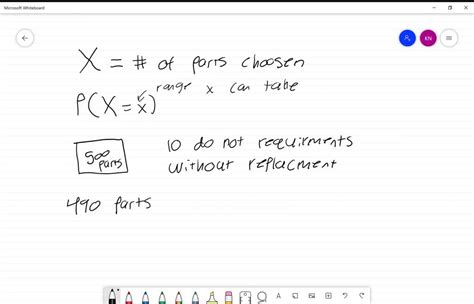 Microsoft Whiteboard
KN
X = # of parts choosen
P(X = x) range x can take
500 parts
10 do not requirments
without replacment
490 parts